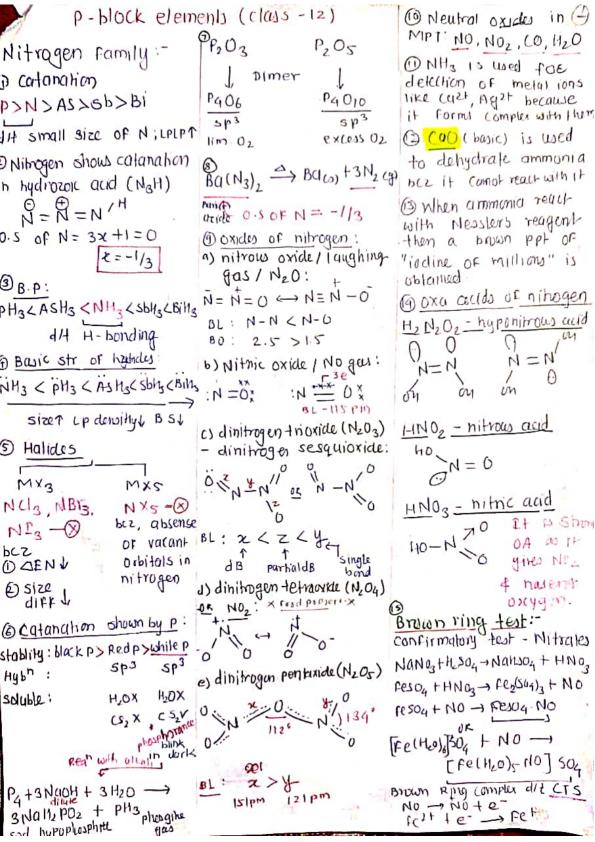 P-block elements (class-12)
Nitrogen family:-
① Catanation
P>N>AS>Sb>Bi
d/t small size of N; LPLP↑
② Nitrogen shows catanation
in hydrozoic acid (N₃H)
N = N = N H
O.S of N = 3x+1=0
x=-1/3
③ B.P:
PH₃<ASH₃<NH₃<SbH₃<BiH₃
d/t H-bonding
④ Basic str of hydrides:
NH₃ < PH₃ < AsH₃<SbH₃<BiH₃
size↑ Lp density↓ BS↓
⑤ Halides
MX₃ MX₅
NCl₃, NBr₃, NX₅-⊗
NI₃-⊗ bcz, absense
bcz of vacant
① ΔEN↓ orbitals in
② size nitrogen
diff↓
⑥ Catanation shown by P:
stablity: black P> Red P>white P
Hybⁿ: sp³ sp³
soluble: H₂OX H₂OX
CS₂ X CS₂✓
blink
in dark
Reaⁿ with alkali
P₄+3NaOH + 3H₂O →
dilute
3NaH₂PO₂ + PH₃ phosphine
hypophosphite gas
⑦ P₂O₃ P₂O₅
↓ Dimer ↓
P₄O₆ P₄O₁₀
sp³ sp³
lim O₂ excess O₂
⑧ Ba(N₃)₂ Δ→ Ba(s) +3N₂(g)
azide O.S OF N = -1/3
⑨ oxides of nitrogen:
a) nitrous oxide / laughing
gas / N₂O:
N = N = O ↔ N≡N-O
BL: N-N < N-O
BO: 2.5 >1.5
b) Nitric oxide / NO gas:
:N = O: :N O 3e
BL-115 pm
c) dinitrogen trioxide (N₂O₃)
- dinitrogen sesquioxide:
O N x N y O z O or N-N O O
BL: x < z < y
dB partial dB single
bond
d) dinitrogen tetraoxide (N₂O₄)
OR NO₂:
N O O ↔ N O O
e) dinitrogen pentaoxide (N₂O₅)
O N O x O N y O O 134°
112°
BL: x > y
151pm 121pm
⑩ Neutral oxides in
MPT: NO, NO₂, CO, H₂O
⑪ NH₃ is used for
detection of metal ions
like Cu²⁺, Ag²⁺ because
it forms complex with them
⑫ CaO (basic) is used
to dehydrate ammonia
bcz it cannot react with it
⑬ When ammonia react
with Nessler's reagent
then a brown ppt of
"iodine of millions" is
obtained
⑭ oxa acids of nitrogen
H₂N₂O₂ - hyponitrous acid
N=N OH OH N=N OH
HNO₂ - nitrous acid
HO N = O
HNO₃ - nitric acid
HO-N O O
It is strong
OA as it
gives NO₂
& nascent
oxygen.
⑮ Brown ring test:-
confirmatory test - Nitrates
NaNO₃+H₂SO₄→NaHSO₄ + HNO₃
FeSO₄ + HNO₃→Fe₂(SO₄)₃ + NO
FeSO₄ + NO → FeSO₄.NO
OR
[Fe(H₂O)₆]SO₄ + NO →
[Fe(H₂O)₅.NO] SO₄
Brown Ring complex d/t CTS
NO → NO + e⁻
Fe²⁺ + e⁻ → Fe⁺